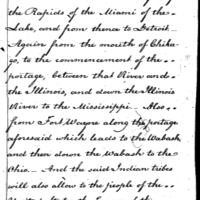 the Rapids of the Miami of the
Lake, and from thence to Detroit
Again from the mouth of Chika-
go, to the commencement of the
portage, between that River and
the Illinois, and down the Illinois
River to the Mississippi - Also
from Fort Wayne along the portage
aforesaid which leads to the Wabash
and then down the Wabash to the
Ohio. - And the said Indian tribes
will also allow to the people of the